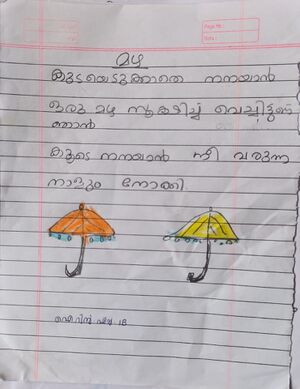 മഴ
കുടയെടുക്കാതെ നനയാൻ
ഒരു മഴ സൂക്ഷിച്ച് വെച്ചിട്ടുണ്ട്
ഞാൻ
കൂടെ നനയാൻ നീ വരുന്ന
നാളും നോക്കി